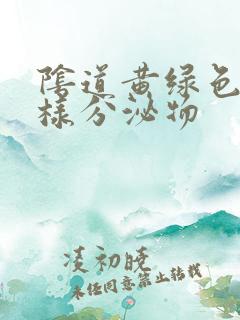 陰道黄绿色
样分泌物
凌初晓
未经同意禁止转载